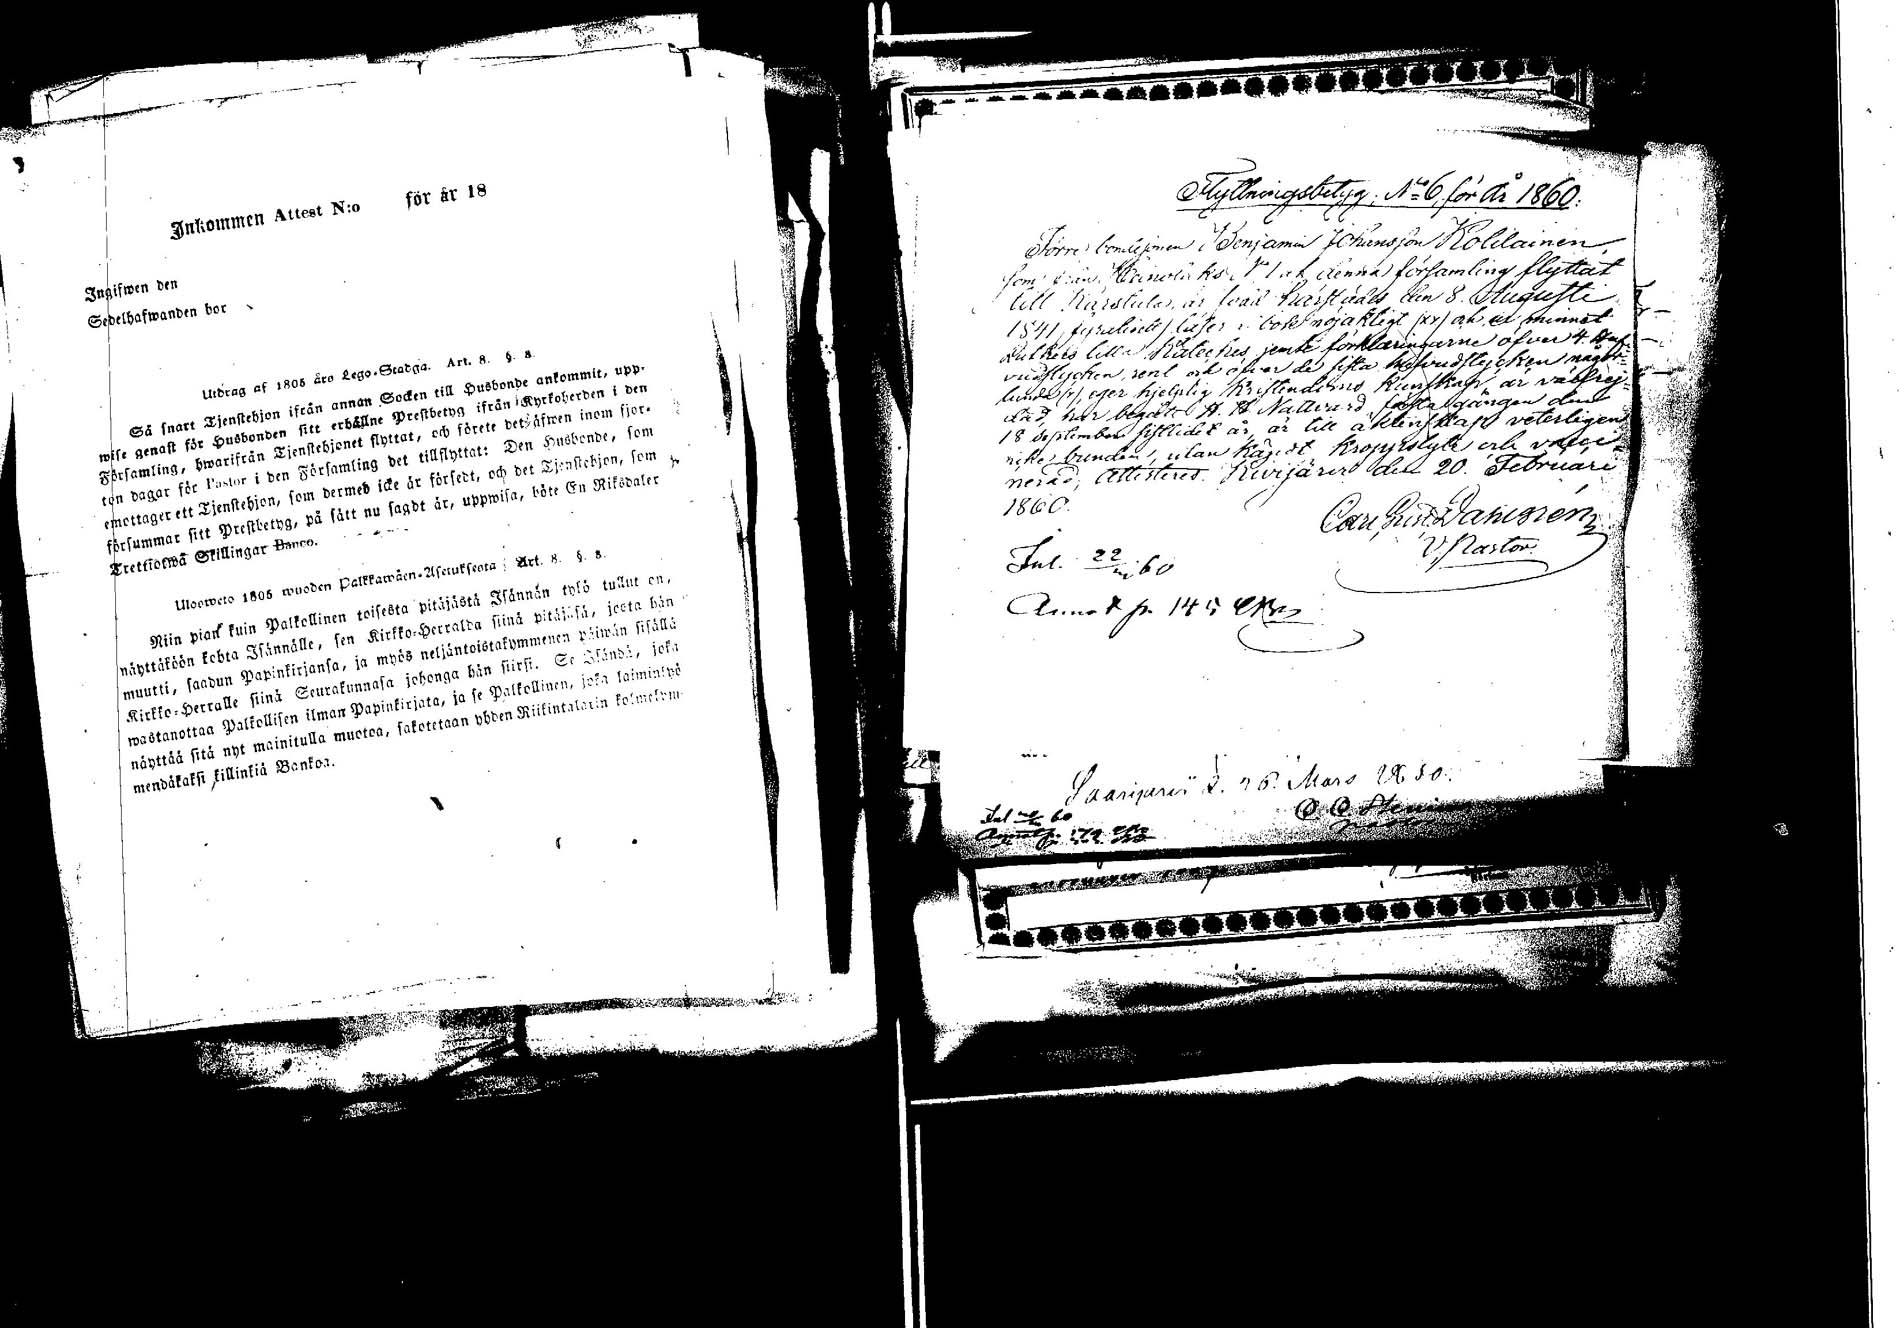 Inkommen Attest N:o för år 18
Ingifwen den
Sedelhafwanden bor
Utdrag af 1805 års Lego-Stadga. Art. 8. §. 8.
Så snart Tjenstehjon ifrån annan Socken till Husbonde ankommit, upp-
wise genast för Husbonden sitt erhållne Prestbetyg ifrån Kyrkoherden i den
Församling, hwarifrån Tjenstehjonet flyttat, och förete det äfwen inom fjor-
ton dagar för Pastor i den Församling det tillflyttat: Den Husbonde, som
emottager ett Tjenstehjon, som dermed icke är försedt, och det Tjenstehjon, som
försummar sitt Prestbetyg, på sätt nu sagdt är, uppwisa, böte En Riksdaler
Trettiotwå Skillingar Banco.
Ulosweto 1805 wuoden Palkkawäen-Asetuksesta Art. 8. §. 8.
Niin pian kuin Palkollinen toisesta pitäjästä Isännän tykö tullut on,
näyttäköön kohta Isännälle, sen Kirkko-Herralda siinä pitäjäsä, josta hän
muutti, saadun Papinkirjansa, ja myös neljäntoistakymmenen päiwän sisällä
Kirkko-Herralle siinä Seurakunnasa johonga hän siirsi. Se Isändä, joka
wastanottaa Palkollisen ilman Papinkirjata, ja se Palkollinen, joka laiminlyö
näyttää sitä nyt mainitulla muotoa, sakotetaan yhden Riikintalarin kolmekym-
mendäkaksi killinkiä Bankoa.
Flyttningsbetyg, No 6, för år 1860.
Förre bondesonen Benjamin Johansson Kolilainen,
som från No 1 af denna församling flyttat
till Karstula, är född härstädes den 8. Augusti
1841, läser i bok nöjaktigt (xx) och ur minnet
Lutheri lilla Kateches jemte förklaringarne öfver 4. Huf-
vudstycken, rent och öfver de sista hufvudstycken något-
lunda, eger hjelplig kristendoms kunskap, är välfrej-
dad, har begått H. H. Nattvard första gången den
18 September sistlidet år, är till äktenskap veterligen
icke bunden, utan kändt kroppslyte och vacci-
nerad, attesteras. Kivijärvi den 20. Februari
1860.
Carl Gust. Dahlgrén
V. Pastor.
Jul. 22/60
Annot. p. 145
Saarijärvi d. 26. Mars 1860.